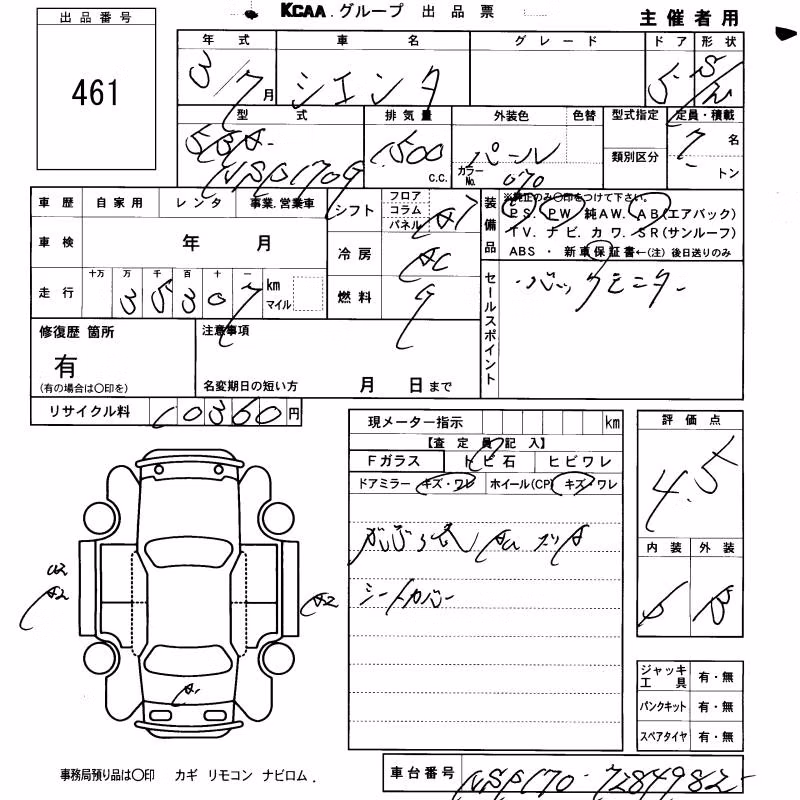 KCAA グループ 出品票
主催者用
出品番号
461
年式 車名 グレード ドア 形状
3/7月 シエンタ 5 S/W
型式 排気量 外装色 色替 型式指定 定員・積載
5BA- 1500 C.C. パール 7名
NSP170G カラーNo. 070 類別区分 トン
車歴 自家用 レンタ 事業.営業車
シフト フロア コラム パネル AT
車検 年 月
冷房 AC
走行 十万 万 千 百 十 一
35307 km マイル
燃料 G
装備品 ※純正のみ〇印をつけて下さい。
PS. PW 純AW. AB(エアバック)
TV. ナビ. カワ. SR(サンルーフ)
ABS ・ 新車保証書←(注) 後日送りのみ
セールスポイント
・バックモニター
修復歴 箇所
有
(有の場合は〇印を)
注意事項
名変期日の短い方 月 日まで
リサイクル料 10360円
現メーター指示 km
【査定員記入】
Fガラス トビ石 ヒビワレ
ドアミラー キズ・ワレ ホイール(CP) キズ・ワレ
シートカバー
評価点
4.5
内装 外装
B
A2
A2
A1
ジャッキ工具 有・無
パンクキット 有・無
スペアタイヤ 有・無
事務局預り品は〇印 カギ リモコン ナビロム.
車台番号 NSP170-7284982-